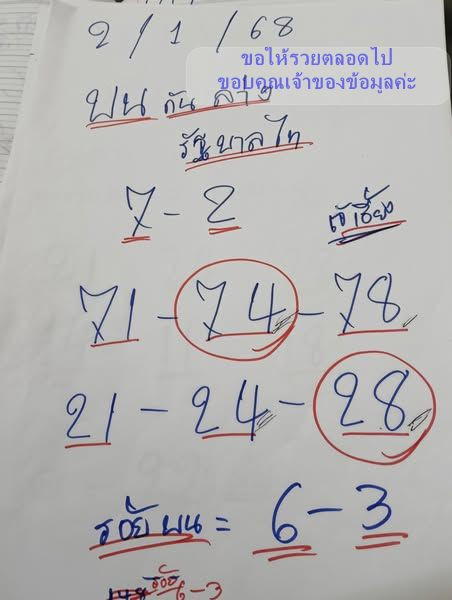 2 / 1 / 68
ขอให้รวยตลอดไป
ขอบคุณเจ้าของข้อมูลค่ะ
บน กับ ล่าง
รัฐบาลไท
7 - 2
เจ๊เฮี้ยง
71 - 74 - 78
21 - 24 - 28
ร้อยบน = 6 - 3
ร้อย 6 - 3